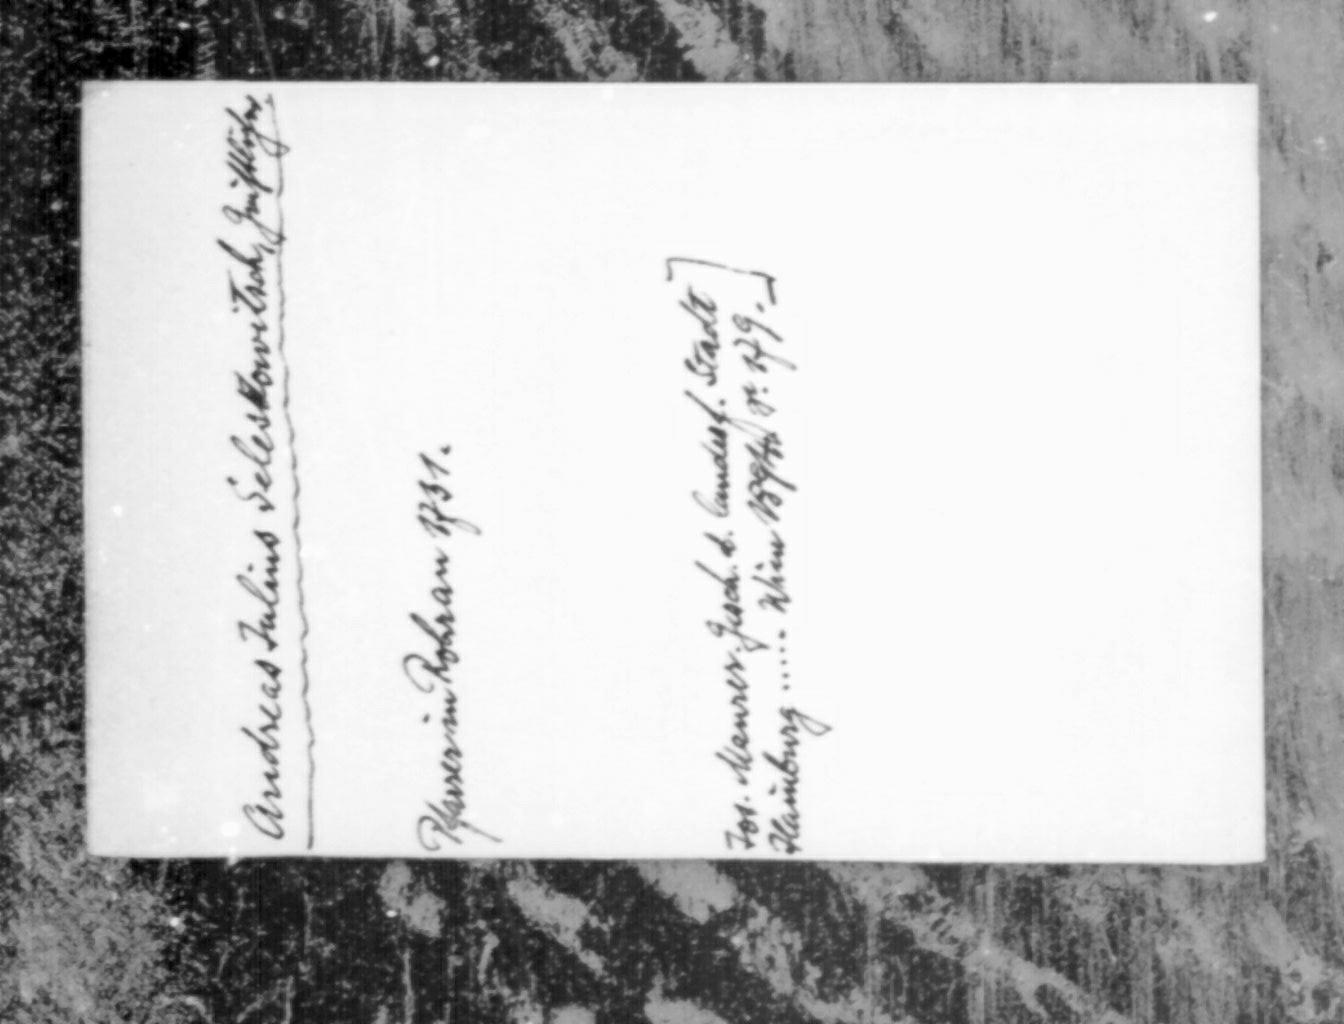 Andreas Julius Seleskowitsch, Geistlicher.
Pfarrer in Rohrau 1731.
Jos. Maurer. Gesch. d. landesf. Stadt
Hainburg ..... Wien 1894 S. 179.]